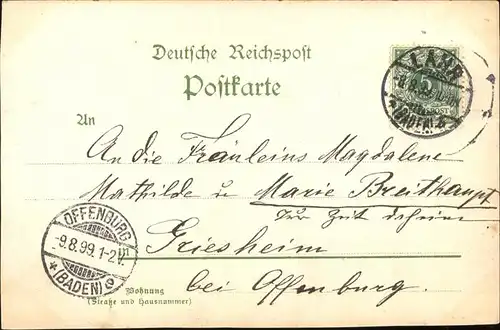 Deutsche Reichspost
Postkarte
LAHR
8.8.99.
(BADEN)
An
An die Fräuleins Magdalene
Mathilde u Marie Breithaupt
zur Zeit daheim
Griesheim
bei Offenburg.
OFFENBURG
-9.8.99.1-2V.
*(BADEN)
Wohnung
(Straße und Hausnummer)